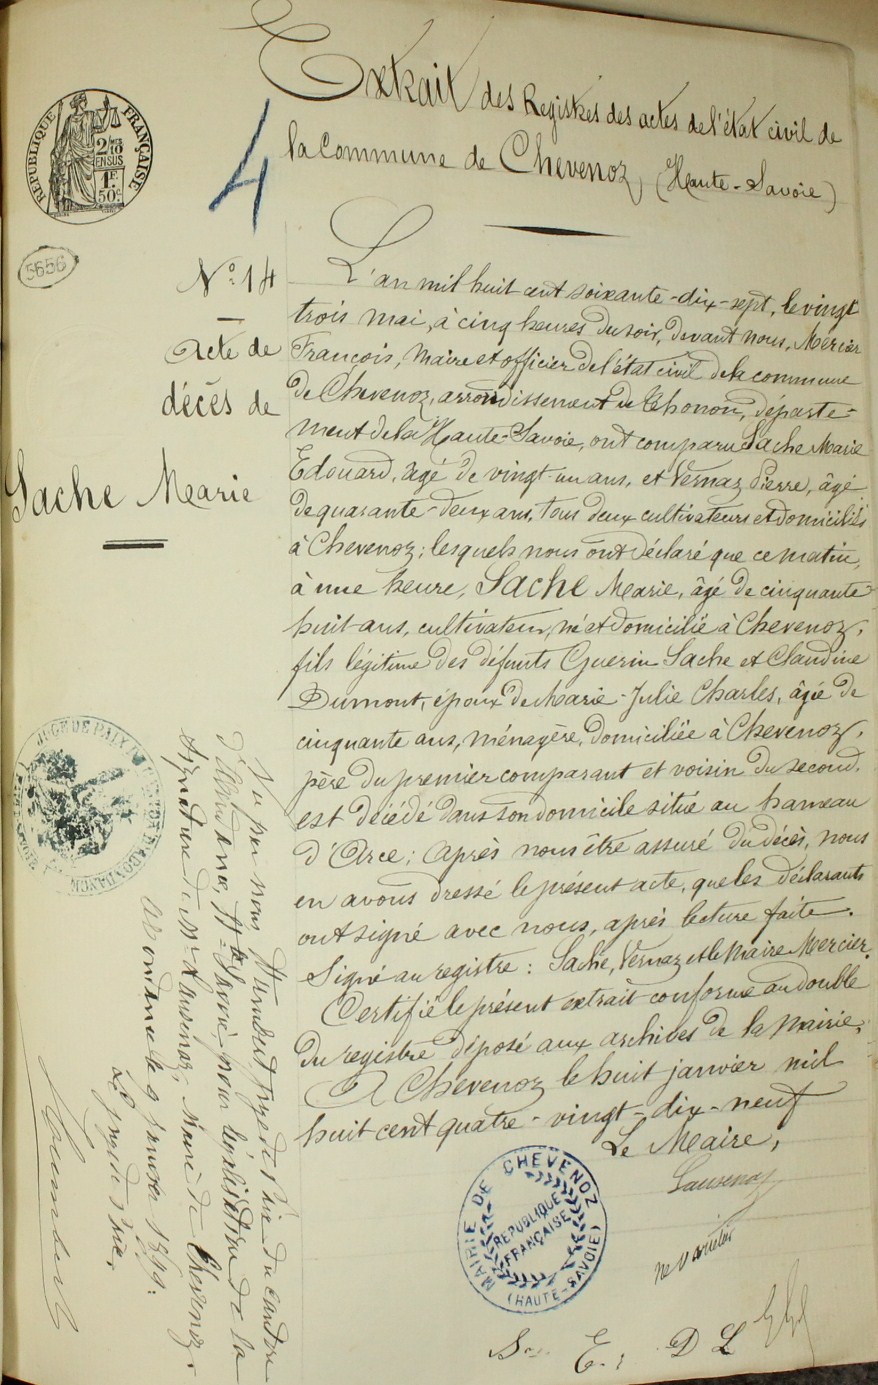 Extrait des Registres des actes de l'état civil de
la commune de Chevenoz, (Haute-Savoie)
RÉPUBLIQUE FRANÇAISE
2/10 EN SUS
1F. 50c
4
5656
N° 14
Acte de
décès de
Sache Marie
L'an mil huit cent soixante-dix-sept, le vingt
trois mai, à cinq heures du soir, devant nous, Mercier
François, Maire et officier de l'état civil de la commune
de Chevenoz, arrondissement de Thonon, départe-
ment de la Haute-Savoie, ont comparu Sache Marie
Edouard, âgé de vingt-un ans, et Vernaz Pierre, âgé
de quarante-deux ans, tous deux cultivateurs et domiciliés
à Chevenoz; lesquels nous ont déclaré que ce matin,
à une heure, Sache Marie, âgé de cinquante-
huit ans, cultivateur, né et domicilié à Chevenoz,
fils légitime des défunts Guerin Sache et Claudine
Dumont, époux de Marie-Julie Charles, âgée de
cinquante ans, ménagère, domiciliée à Chevenoz,
père du premier comparant et voisin du second,
est décédé dans son domicile situé au hameau
d'Arce; Après nous être assuré du décès, nous
en avons dressé le présent acte, que les déclarants
ont signé avec nous, après lecture faite.
Signé au registre: Sache, Vernaz et le Maire Mercier.
Certifié le présent extrait conforme au double
du registre déposé aux archives de la Mairie.
A Chevenoz le huit janvier mil
huit cent quatre-vingt-dix-neuf
Le Maire,
MAIRIE DE CHEVENOZ
RÉPUBLIQUE FRANÇAISE
(HAUTE-SAVOIE)
ne varietur
E. D L
JUGE DE PAIX
Vu par nous Humbert Juge de Paix du canton
d'Abondance, Hte-Savoie pour légalisation de la
signature de Mr. Maire de Chevenoz.
Abondance le 9 janvier 1899.
Le Juge de Paix,
Humbert